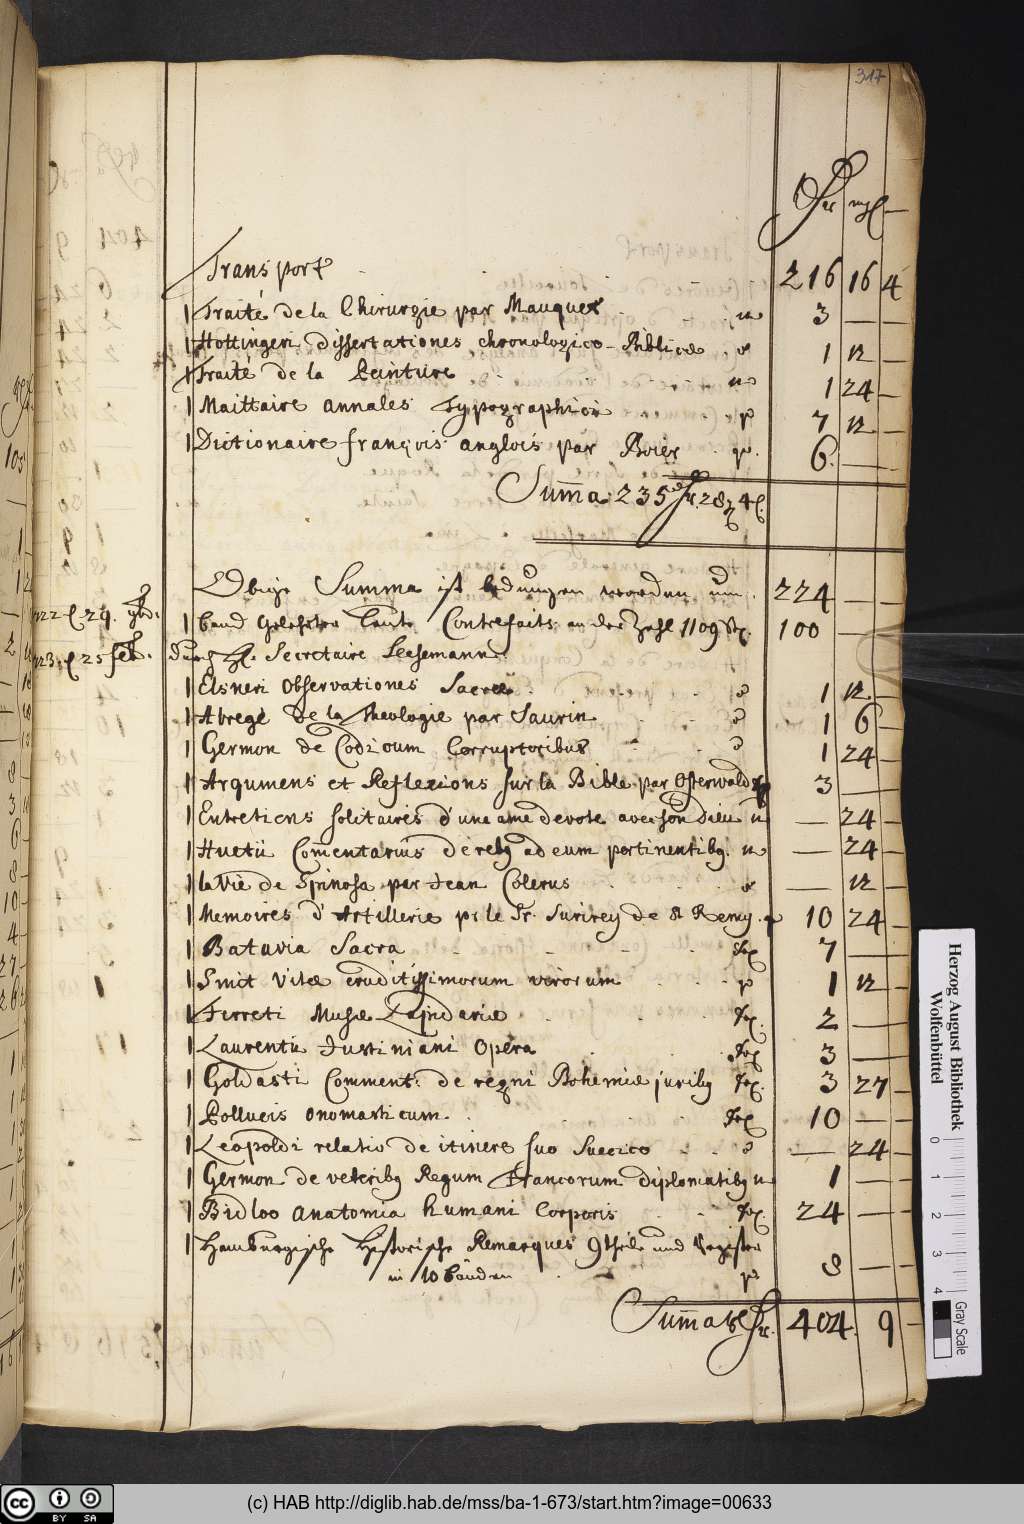 317
Thr mgl
Transport 216 16 4
1 Traité de la Chirurgie par Mauquest 3 —
1 Hottingeri dissertationes chronologico-Biblicæ 1 12 —
1 Traité de la Peinture 1 24 —
1 Maittaire annales Typographici 7 12 —
1 Dictionaire françois anglois par Boier 6 —
Summa 235 28 4
Obige Summa ist bedungen worden um 224 — —
722 29
1 band gelehrter Leute Contrefaits an der Zahl 1109 100 —
723 25 feb.
durch H. Secretaire Leesemann
1 Elsneri Observationes Sacræ 1 12 —
1 Abregé de la Theologie par Saurin 1 6 —
1 Germon de Codicum Corruptoribus 1 24 —
1 Argumens et Reflexions sur la Bible par Osterwald 3 —
1 Entretiens solitaires d'une ame devote avec son Dieu — 24 —
1 Huetii Comentarius de rebg ad eum pertinentibg — 24 —
1 la Vie de Spinosa par Jean Colerus — 12 —
1 Memoires d'Artillerie pr le Sr. Surirey de St Remy 10 24 —
1 Batavia Sacra 7 —
1 Smit Vitæ eruditissimorum virorum 1 12 —
1 Ferreti Musæ Lapidariæ 2 —
1 Laurentii Justiniani Opera 3 —
1 Goldasti Comment: de regni Bohemiæ juribg 3 27 —
1 Pollucis onomasticum 10 —
1 Leopoldi relatio de itinere suo Suecico — 24 —
1 Germon de veteribg Regum Francorum diplomatibg 1 —
1 Bidloo anatomia humani Corporis 24 —
1 Hamburgische Historische Remarques 9 theile und Register
in 10 bänden 8 —
Summa 404 9 —
Herzog August Bibliothek
Wolfenbüttel
0 1 2 3 4
Gray Scale
cc BY SA
(c) HAB http://diglib.hab.de/mss/ba-1-673/start.htm?image=00633